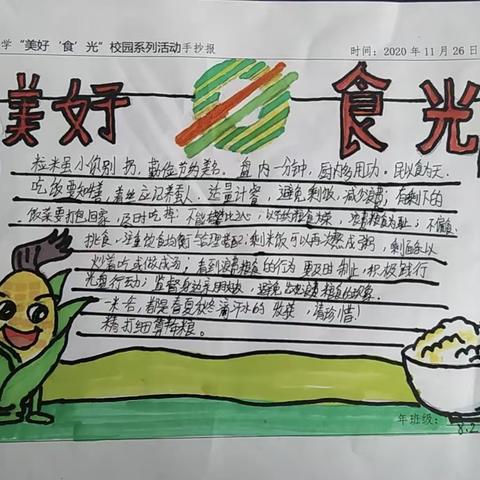 学“美好‘食’光”校园系列活动手抄报 时间：2020年11月26日
美好 食光
粒米虽小 别扔，勤俭节约美名。盘内一分钟，厨内多用功。民以食为天
吃饭要知惜，着丝应记养蚕人。达量计窖，避免剩饭，减少浪费；有剩下的
饭菜要打包回家，及时吃掉；不能攀比之心；以节约粮食为荣，浪费粮食为耻；不偏食
挑食，注重饮食均衡合理搭配；剩米饭可以再熬成粥，剩面条以
炒着吃或做成汤；看到浪费粮食的行为要及时制止，积极践行
光盘行动；监督身边，避免出现浪费粮食的现象。
一米一谷，都是春夏秋冬滴汗水的收获，请珍惜！
精打细算 粮。
年班级：8.2